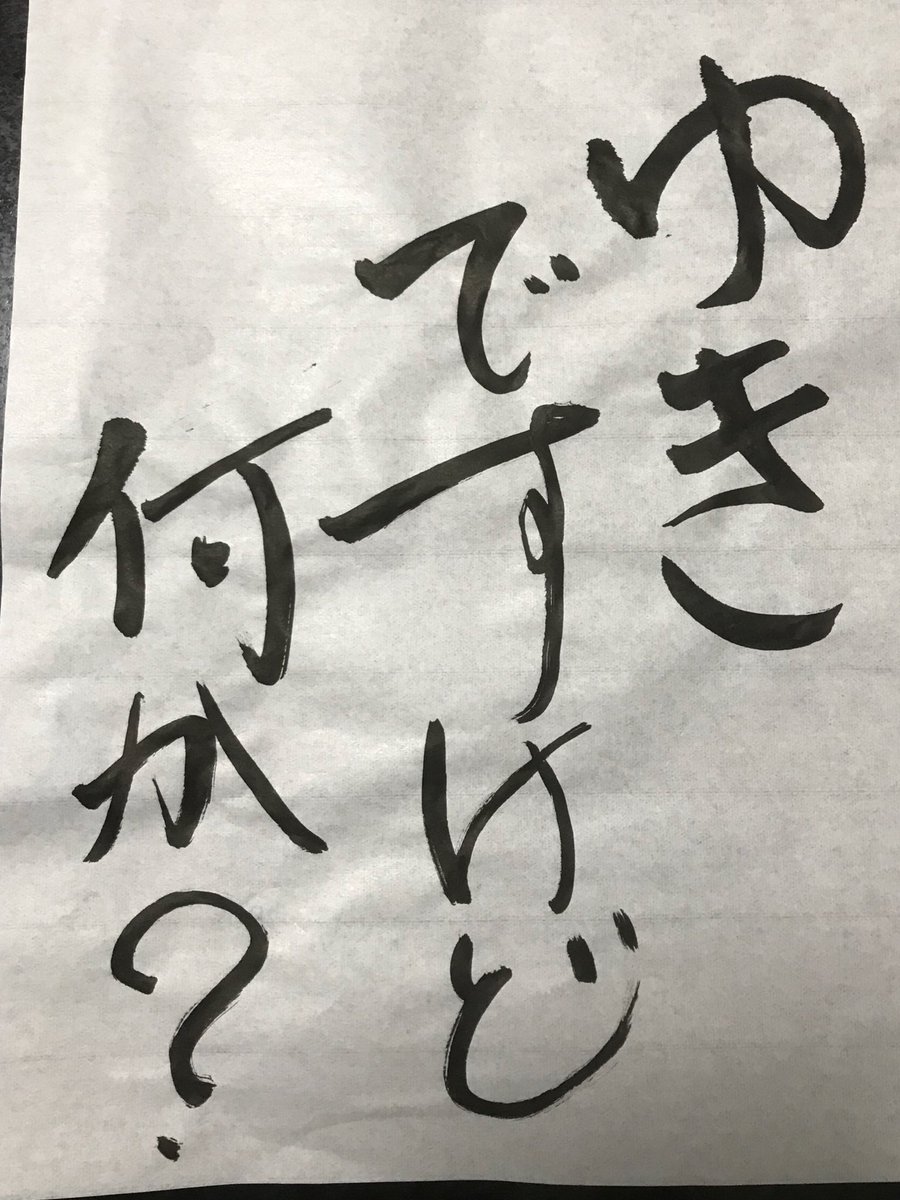 ゆき
ですけど
何か?